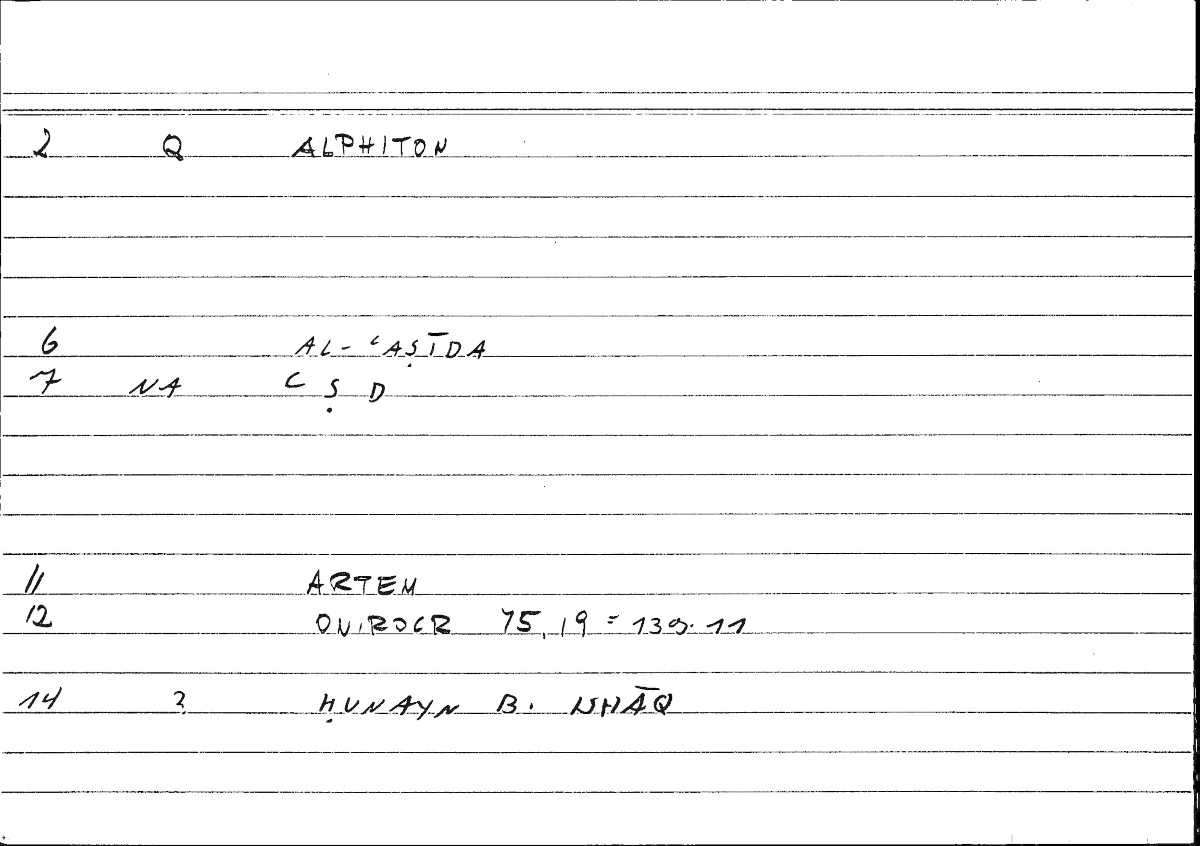 2 Q ALPHITON
6 AL-ʿAṢĪDA
7 NA ʿ Ṣ D
11 ARTEM
12 ONIROCR 75,19 = 139.11
14 2 ḤUNAYN B. ISHĀQ